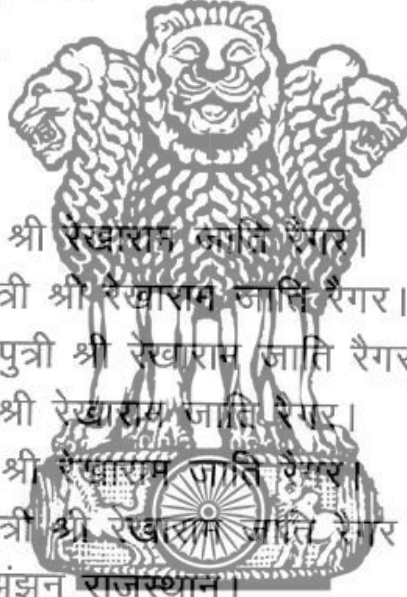 श्री रेखाराम जाति रैगर।
त्री श्री रेखाराम जाति रैगर।
पुत्री श्री रेखाराम जाति रैगर
श्री रेखाराम जाति रैगर।
श्री रेखाराम जाति रैगर।
त्री श्री रेखाराम जाति रैगर
मंझनू राजस्थान।